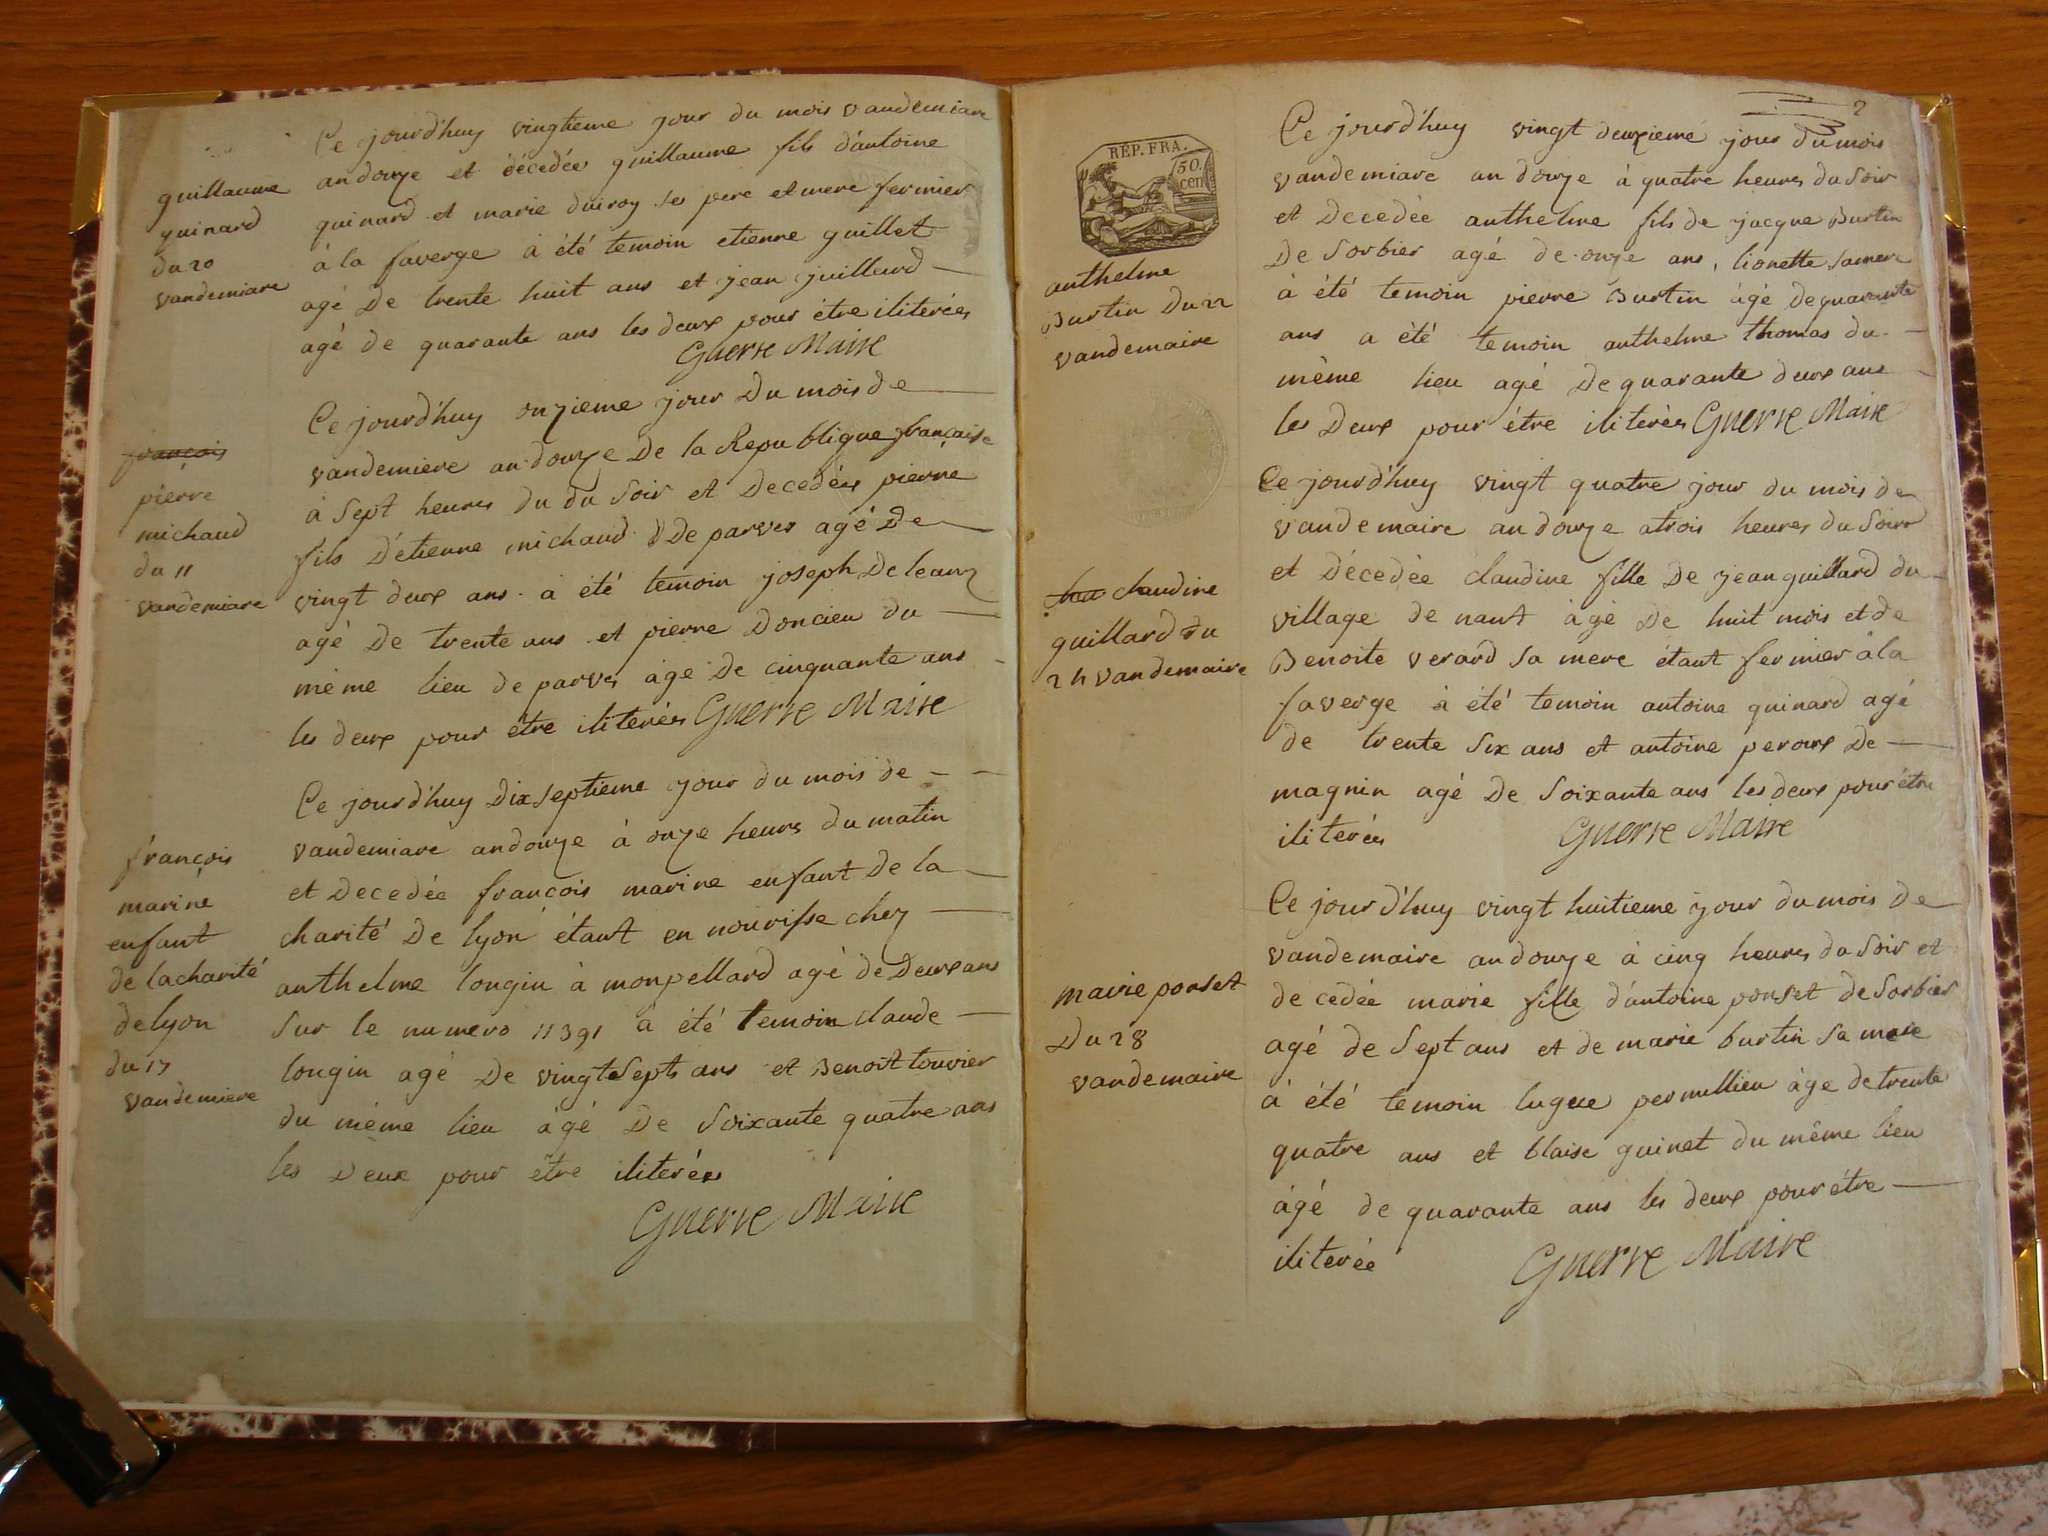 guillaume
guinard
du 20
vandemiare
Ce jourd'huy vingtieme jour du mois vandemiare
an douze et décedée guillaume fils d'antoine
guinard et marie duiroy ses pere et mere fermier
à la faverge à été temoin etienne guillet
agé De trente huit ans et jean juillerd
agé de quarante ans les deux pour étre iliterées
Guerre Maire
françois
pierre
michaud
du 11
vandemiare
Ce jourd'huy onzieme jour Du mois de
vandemiere an douze De la Republique française
à Sept heures du du Soir et Decedée pierre
fils D'étienne michaud De parves agé De
vingt deux ans à été temoin joseph Deleanz
agé De trente ans et pierre Doncieu du
même lieu de parves agé De cinquante ans
les deux pour étre iliterées Guerre Maire
françois
marine
enfant
de la charité
de lyon
du 17
vandemiere
Ce jourd'huy Dix Septieme jour du mois de
vandemiare an douze à onze heures du matin
et Decedée françois marine enfant De la
charité De lyon étant en nourisse chez
anthelme longin à monpellard agé de Deux ans
Sur le numero 11391 à été temoin claude
longin agé De vingt Septs ans et Benoit touvier
du même lieu agé De Soixante quatre ans
les Deux pour être iliterées
Guerre Maire
2
RÉP. FRA.
50.
cen
anthelme
Burtin Du 22
vandemaire
Ce jourd'huy vingt deuxieme jour du mois
vandemiare an douze à quatre heures du Soir
et Decedée anthelme fils de jacque Burtin
De Sorbier agé de onze ans, lionette Sa mere
à été temoin pierre Burtin agé de quarante
ans a été temoin anthelme thomas du
même lieu agé De quarante deux ans
les Deux pour être iliterées Guerre Maire
claudine
guillard du
24 vandemaire
Ce jourd'huy vingt quatre jour du mois de
vandemaire an douze a trois heures du Soir
et Décedée claudine fille De jean guillard du
village de nant àgé De huit mois et de
Benoite verard Sa mere étant fermier à la
faverge à été temoin antoine guinard agé
de trente Six ans et antoine peroux De
magnin agé De Soixante ans les deux pour étre
iliterées
Guerre Maire
marie ponset
Du 28
vandemaire
Ce jour d'huy vingt huitieme jour du mois De
vandemaire an douze à cinq heures du Soir et
decedée marie fille d'antoine ponset de Sorbier
agé de Sept ans et de marie burtin Sa mere
à été témoin lugue permillieu àge de trente
quatre ans et blaise guinet du même lieu
àgé de quarante ans les deux pour étre
iliterée
Guerre Maire